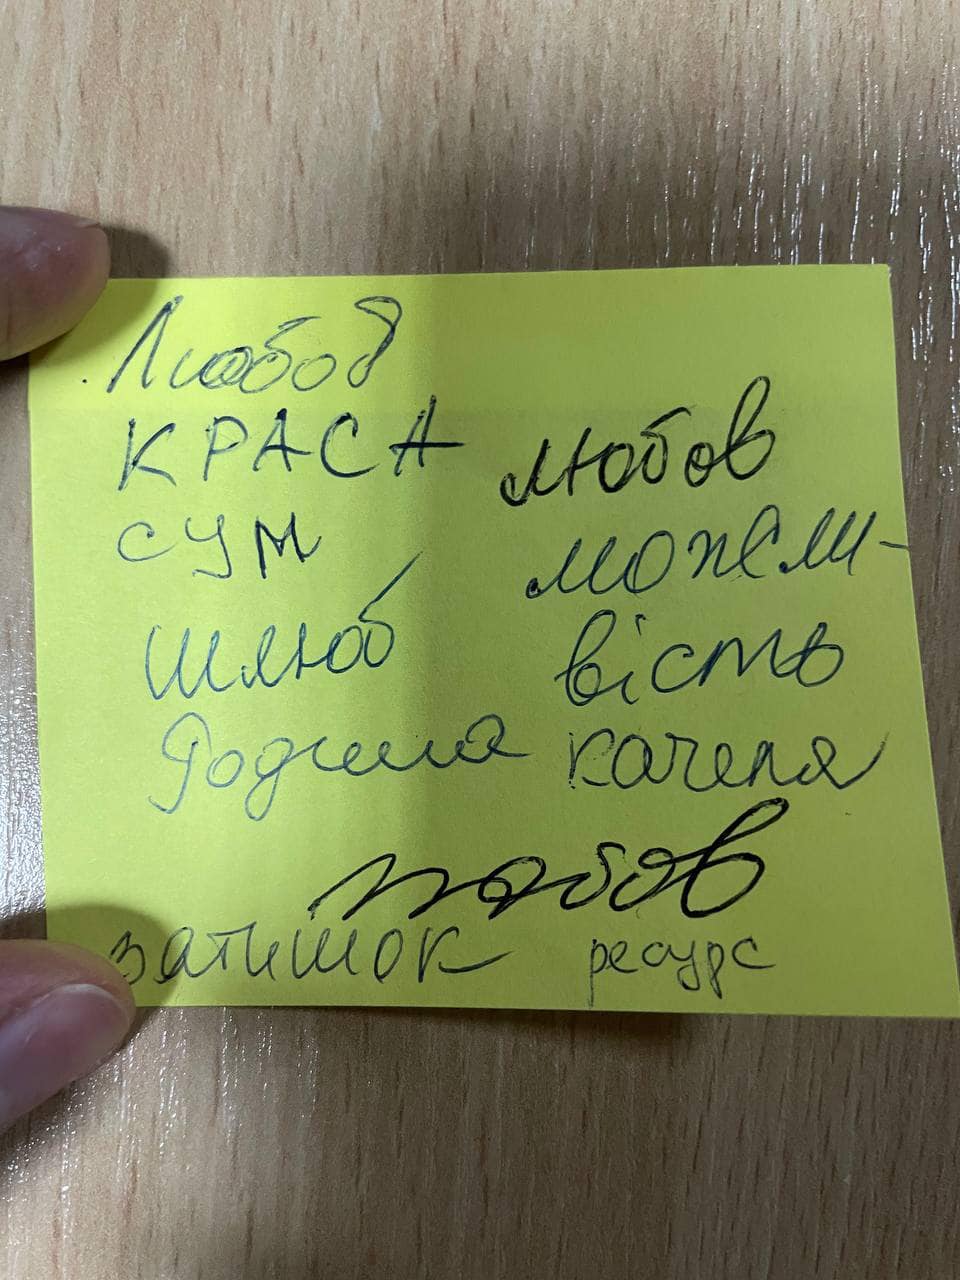 Любов
КРАСА
сум
шлюб
Родина
любов
можли-
вість
качеля
любов
затишок ресурс